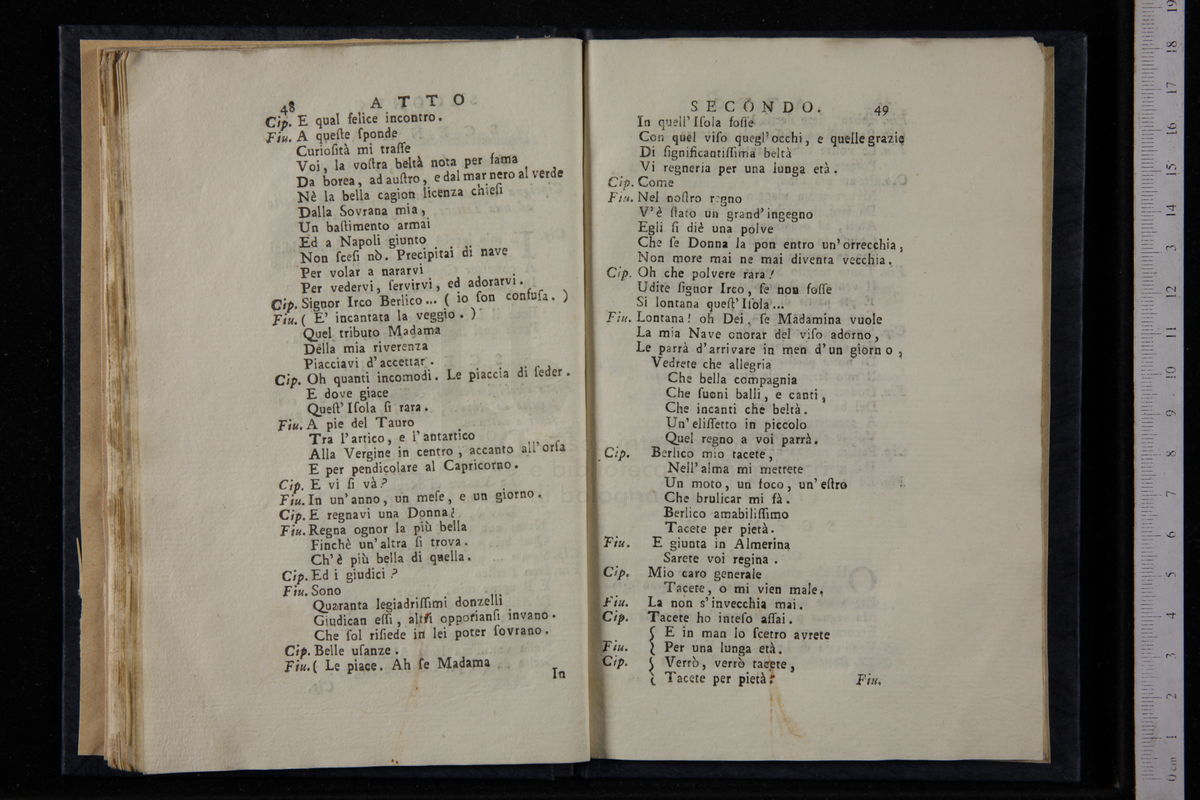 48 ATTO
Cip. E qual felice incontro.
Fiu. A queſte ſponde
Curioſità mi traſſe
Voi, la voſtra beltà nota per fama
Da borea, ad auſtro, e dal mar nero al verde
Nè la bella cagion licenza chieſi
Dalla Sovrana mia,
Un baſtimento armai
Ed a Napoli giunto
Non ſceſi nò. Precipitai di nave
Per volar a nararvi
Per vedervi, ſervirvi, ed adorarvi.
Cip. Signor Irco Berlico... ( io ſon confuſa. )
Fiu. ( E' incantata la veggio. )
Quel tributo Madama
Della mia riverenza
Piacciavi d'accettar.
Cip. Oh quanti incomodi. Le piaccia di ſeder.
E dove giace
Queſt' Iſola ſi rara.
Fiu. A pie del Tauro
Tra l'artico, e l'antartico
Alla Vergine in centro, accanto all'orſa
E per pendicolare al Capricorno.
Cip. E vi ſi và?
Fiu. In un'anno, un meſe, e un giorno.
Cip. E regnavi una Donna?
Fiu. Regna ognor la più bella
Finchè un'altra ſi trova.
Ch'è più bella di quella.
Cip. Ed i giudici?
Fiu. Sono
Quaranta legiadriſſimi donzelli
Giudican eſſi, altri opporianſi invano.
Che ſol riſiede in lei poter ſovrano.
Cip. Belle uſanze.
Fiu. ( Le piace. Ah ſe Madama
In
SECONDO. 49
In quell' Iſola foſſe
Con quel viſo quegl'occhi, e quelle grazie
Di ſignificantiſſima beltà
Vi regneria per una lunga età.
Cip. Come
Fiu. Nel noſtro regno
V'è ſtato un grand'ingegno
Egli ſi diè una polve
Che ſe Donna la pon entro un'orrecchia,
Non more mai ne mai diventa vecchia.
Cip. Oh che polvere rara!
Udite ſignor Irco, ſe non foſſe
Si lontana queſt'Iſola...
Fiu. Lontana! oh Dei, ſe Madamina vuole
La mia Nave onorar del viſo adorno,
Le parrà d'arrivare in men d'un giorno,
Vedrete che allegria
Che bella compagnia
Che ſuoni balli, e canti,
Che incanti che beltà.
Un'eliſſetto in piccolo
Quel regno a voi parrà.
Cip. Berlico mio tacete,
Nell'alma mi mettete
Un moto, un foco, un'eſtro
Che brulicar mi fà.
Berlico amabiliſſimo
Tacete per pietà.
Fiu. E giunta in Almerina
Sarete voi regina.
Cip. Mio caro generale
Tacete, o mi vien male,
Fiu. La non s'invecchia mai.
Cip. Tacete ho inteſo aſſai.
E in man lo ſcetro avrete
Fiu. Per una lunga età.
Cip. Verrò, verrò tacete,
Tacete per pietà:
Fiu.